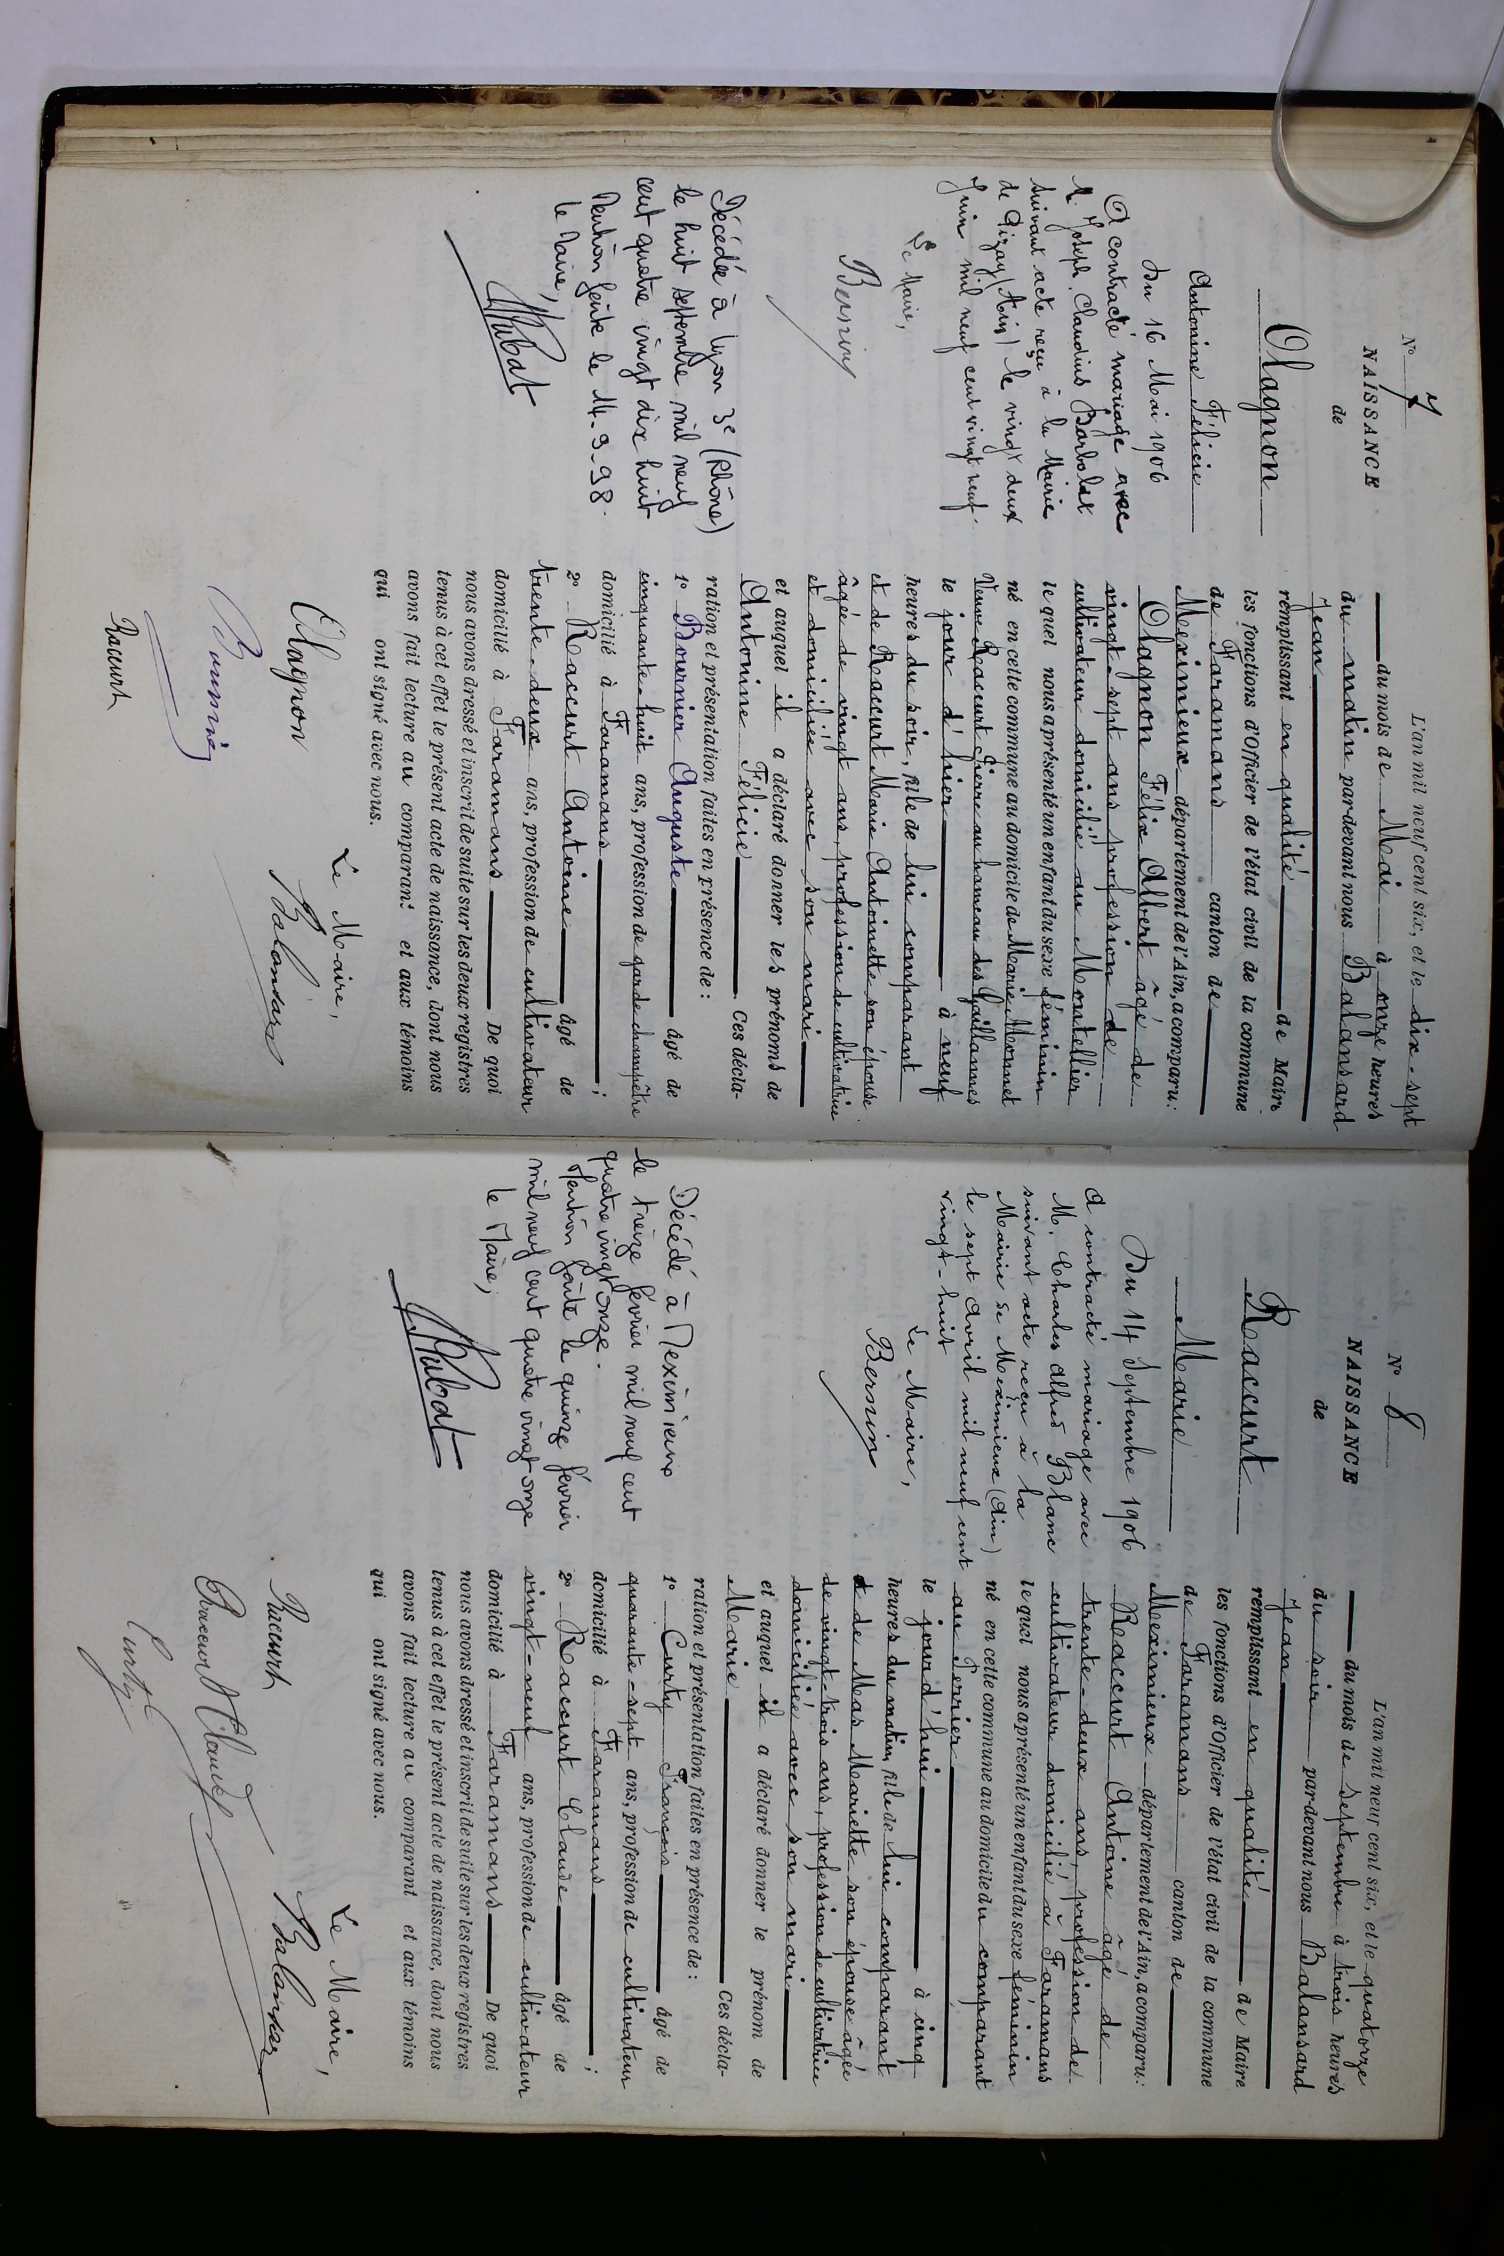 N° 7
NAISSANCE
de
Olagnon
Antonine Félicie
Du 16 Mai 1906
A contracté mariage avec
M. Joseph, Claudius Barbolat
suivant acte reçu à la Mairie
de Dizay (Ain) le vingt deux
Juin mil neuf cent vingt neuf.
Le Maire,
Bernin
Décédée à Lyon 3e (Rhône)
le huit septembre mil neuf
cent quatre vingt dix huit
Mention faite le 14-9-98.
le Maire,
Rubat
L'an mil neuf cent six, et le dix-sept
du mois de Mai à onze heures
du matin par-devant nous Balansard
Jean
remplissant en qualité de Maire
les fonctions d'Officier de l'état civil de la commune
de Faramans canton de
Meximieux département de l'Ain, a comparu:
Olagnon Félix Albert âgé de
vingt-sept ans profession de
cultivateur domicilié au Montellier
lequel nous a présenté un enfant du sexe féminin
né en cette commune au domicile de Marie Monnet
Veuve Raccurt Pierre au hameau des Gaillannes
le jour d'hier à neuf
heures du soir, fille de lui comparant
et de Raccurt Marie Antoinette son épouse
âgée de vingt ans, profession de cultivatrice
et domiciliée avec son mari
et auquel il a déclaré donner les prénoms de
Antonine Félicie Ces décla-
ration et présentation faites en présence de:
1° Bournier Auguste âgé de
cinquante-huit ans, profession de garde champêtre
domicilié à Faramans ;
2° Raccurt Antoine âgé de
trente-deux ans, profession de cultivateur
domicilié à Faramans De quoi
nous avons dressé et inscrit de suite sur les deux registres
tenus à cet effet le présent acte de naissance, dont nous
avons fait lecture au comparant et aux témoins
qui ont signé avec nous.
Le Maire,
Olagnon Balansard
Bournier
Raccurt
N° 8
NAISSANCE
de
Raccurt
Marie
Du 14 Septembre 1906
A contracté mariage avec
M. Charles Alfred Blanc
suivant acte reçu à la
Mairie de Meximieux (Ain)
le sept Avril mil neuf cent
vingt-huit
Le Maire,
Bernin
Décédé à Meximieux
le treize février mil neuf cent
quatre vingt onze.
Mention faite le quinze février
mil neuf cent quatre vingt onze
le Maire,
Rubat
L'an mil neuf cent six, et le quatorze
du mois de Septembre à trois heures
du soir par-devant nous Balansard
Jean
remplissant en qualité de Maire
les fonctions d'Officier de l'état civil de la commune
de Faramans canton de
Meximieux département de l'Ain, a comparu:
Raccurt Antoine âgé de
trente-deux ans, profession de
cultivateur domicilié à Faramans
lequel nous a présenté un enfant du sexe féminin
né en cette commune au domicile du comparant
au Perrier
le jourd'hui à cinq
heures du matin, fille de lui comparant
et de Mas Mariette son épouse âgée
de vingt-trois ans, profession de cultivatrice
domiciliée avec son mari
et auquel il a déclaré donner le prénom de
Marie Ces décla-
ration et présentation faites en présence de:
1° Curty François âgé de
quarante-sept ans, profession de cultivateur
domicilié à Faramans ;
2° Raccurt Claude âgé de
vingt-neuf ans, profession de cultivateur
domicilié à Faramans De quoi
nous avons dressé et inscrit de suite sur les deux registres
tenus à cet effet le présent acte de naissance, dont nous
avons fait lecture au comparant et aux témoins
qui ont signé avec nous.
Le Maire,
Raccurt Balansard
Raccurt Claude
Curty